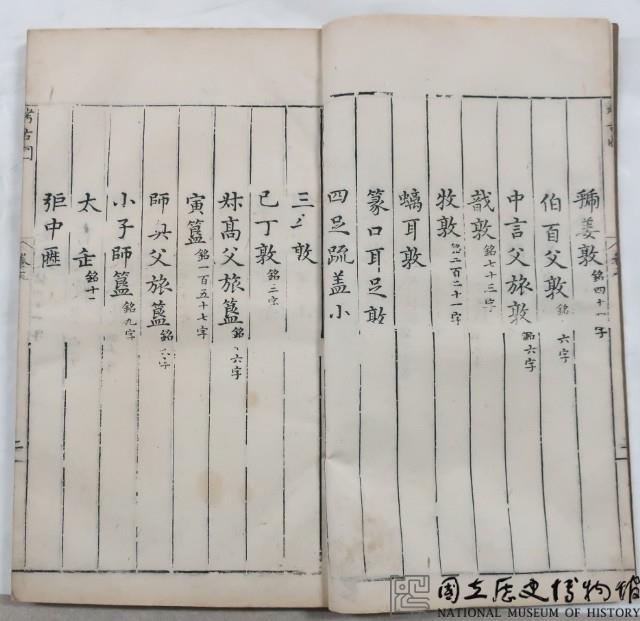 䵼姜敦銘四十一字
伯百父敦銘六字
中言父旅敦銘六字
敔敦銘七十三字
牧敦銘二百二十一字
螭耳敦
篆口耳足敦
四足疏盖小敦
三足敦
己丁敦銘三字
叔高父旅簋銘六字
寅簋銘一百五十七字
師奐父旅簋銘六字
小子師簋銘九字
太 銘十一
弡中匜
考古圖
國立歷史博物館
NATIONAL MUSEUM OF HISTORY